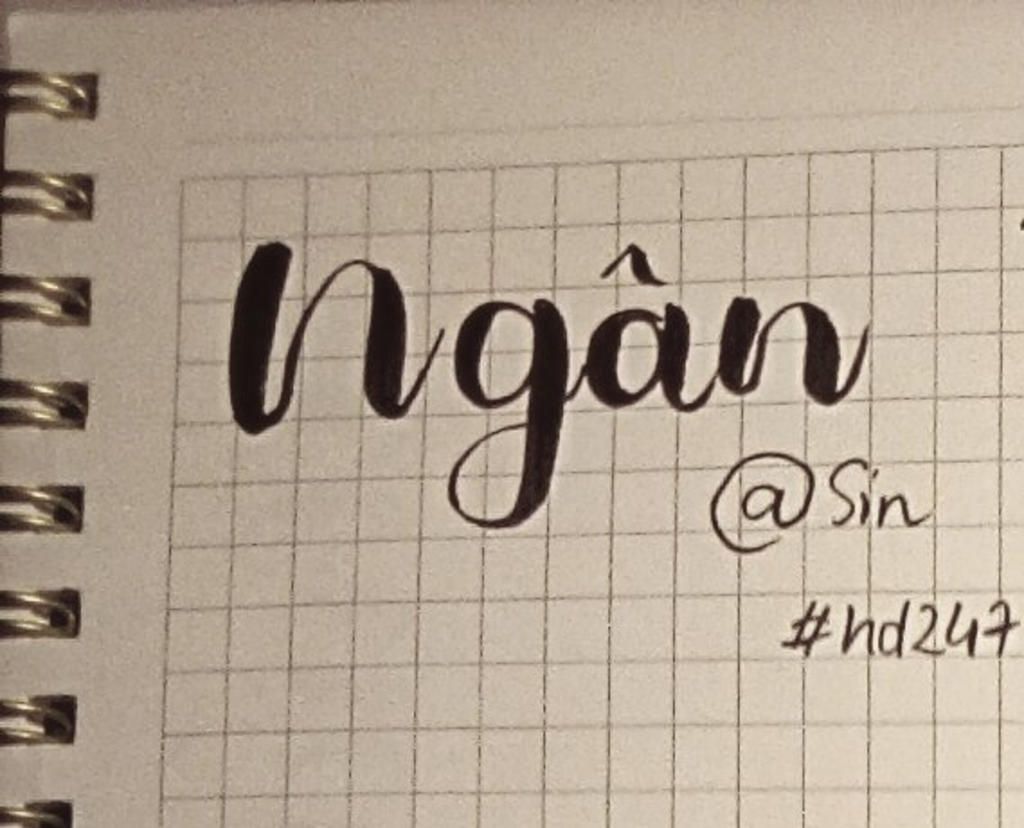 Ngân
@Sin
#hd247